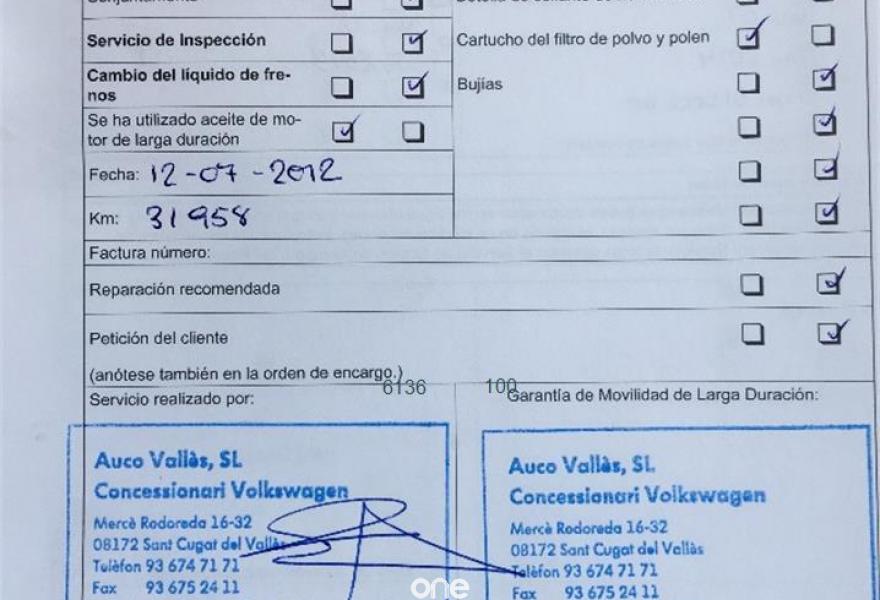 Servicio de Inspección
Cartucho del filtro de polvo y polen
Cambio del líquido de fre-
nos
Bujías
Se ha utilizado aceite de mo-
tor de larga duración
Fecha: 12-07-2012
Km: 31958
Factura número:
Reparación recomendada
Petición del cliente
(anótese también en la orden de encargo.)
6136 100
Servicio realizado por:
Garantía de Movilidad de Larga Duración:
Auco Vallàs, SL
Concessionari Volkswagen
Mercè Rodoreda 16-32
08172 Sant Cugat del Vallès
Telèfon 93 674 71 71
Fax 93 675 24 11
Auco Vallàs, SL
Concessionari Volkswagen
Mercè Rodoreda 16-32
08172 Sant Cugat del Vallàs
Telèfon 93 674 71 71
Fax 93 675 24 11
one